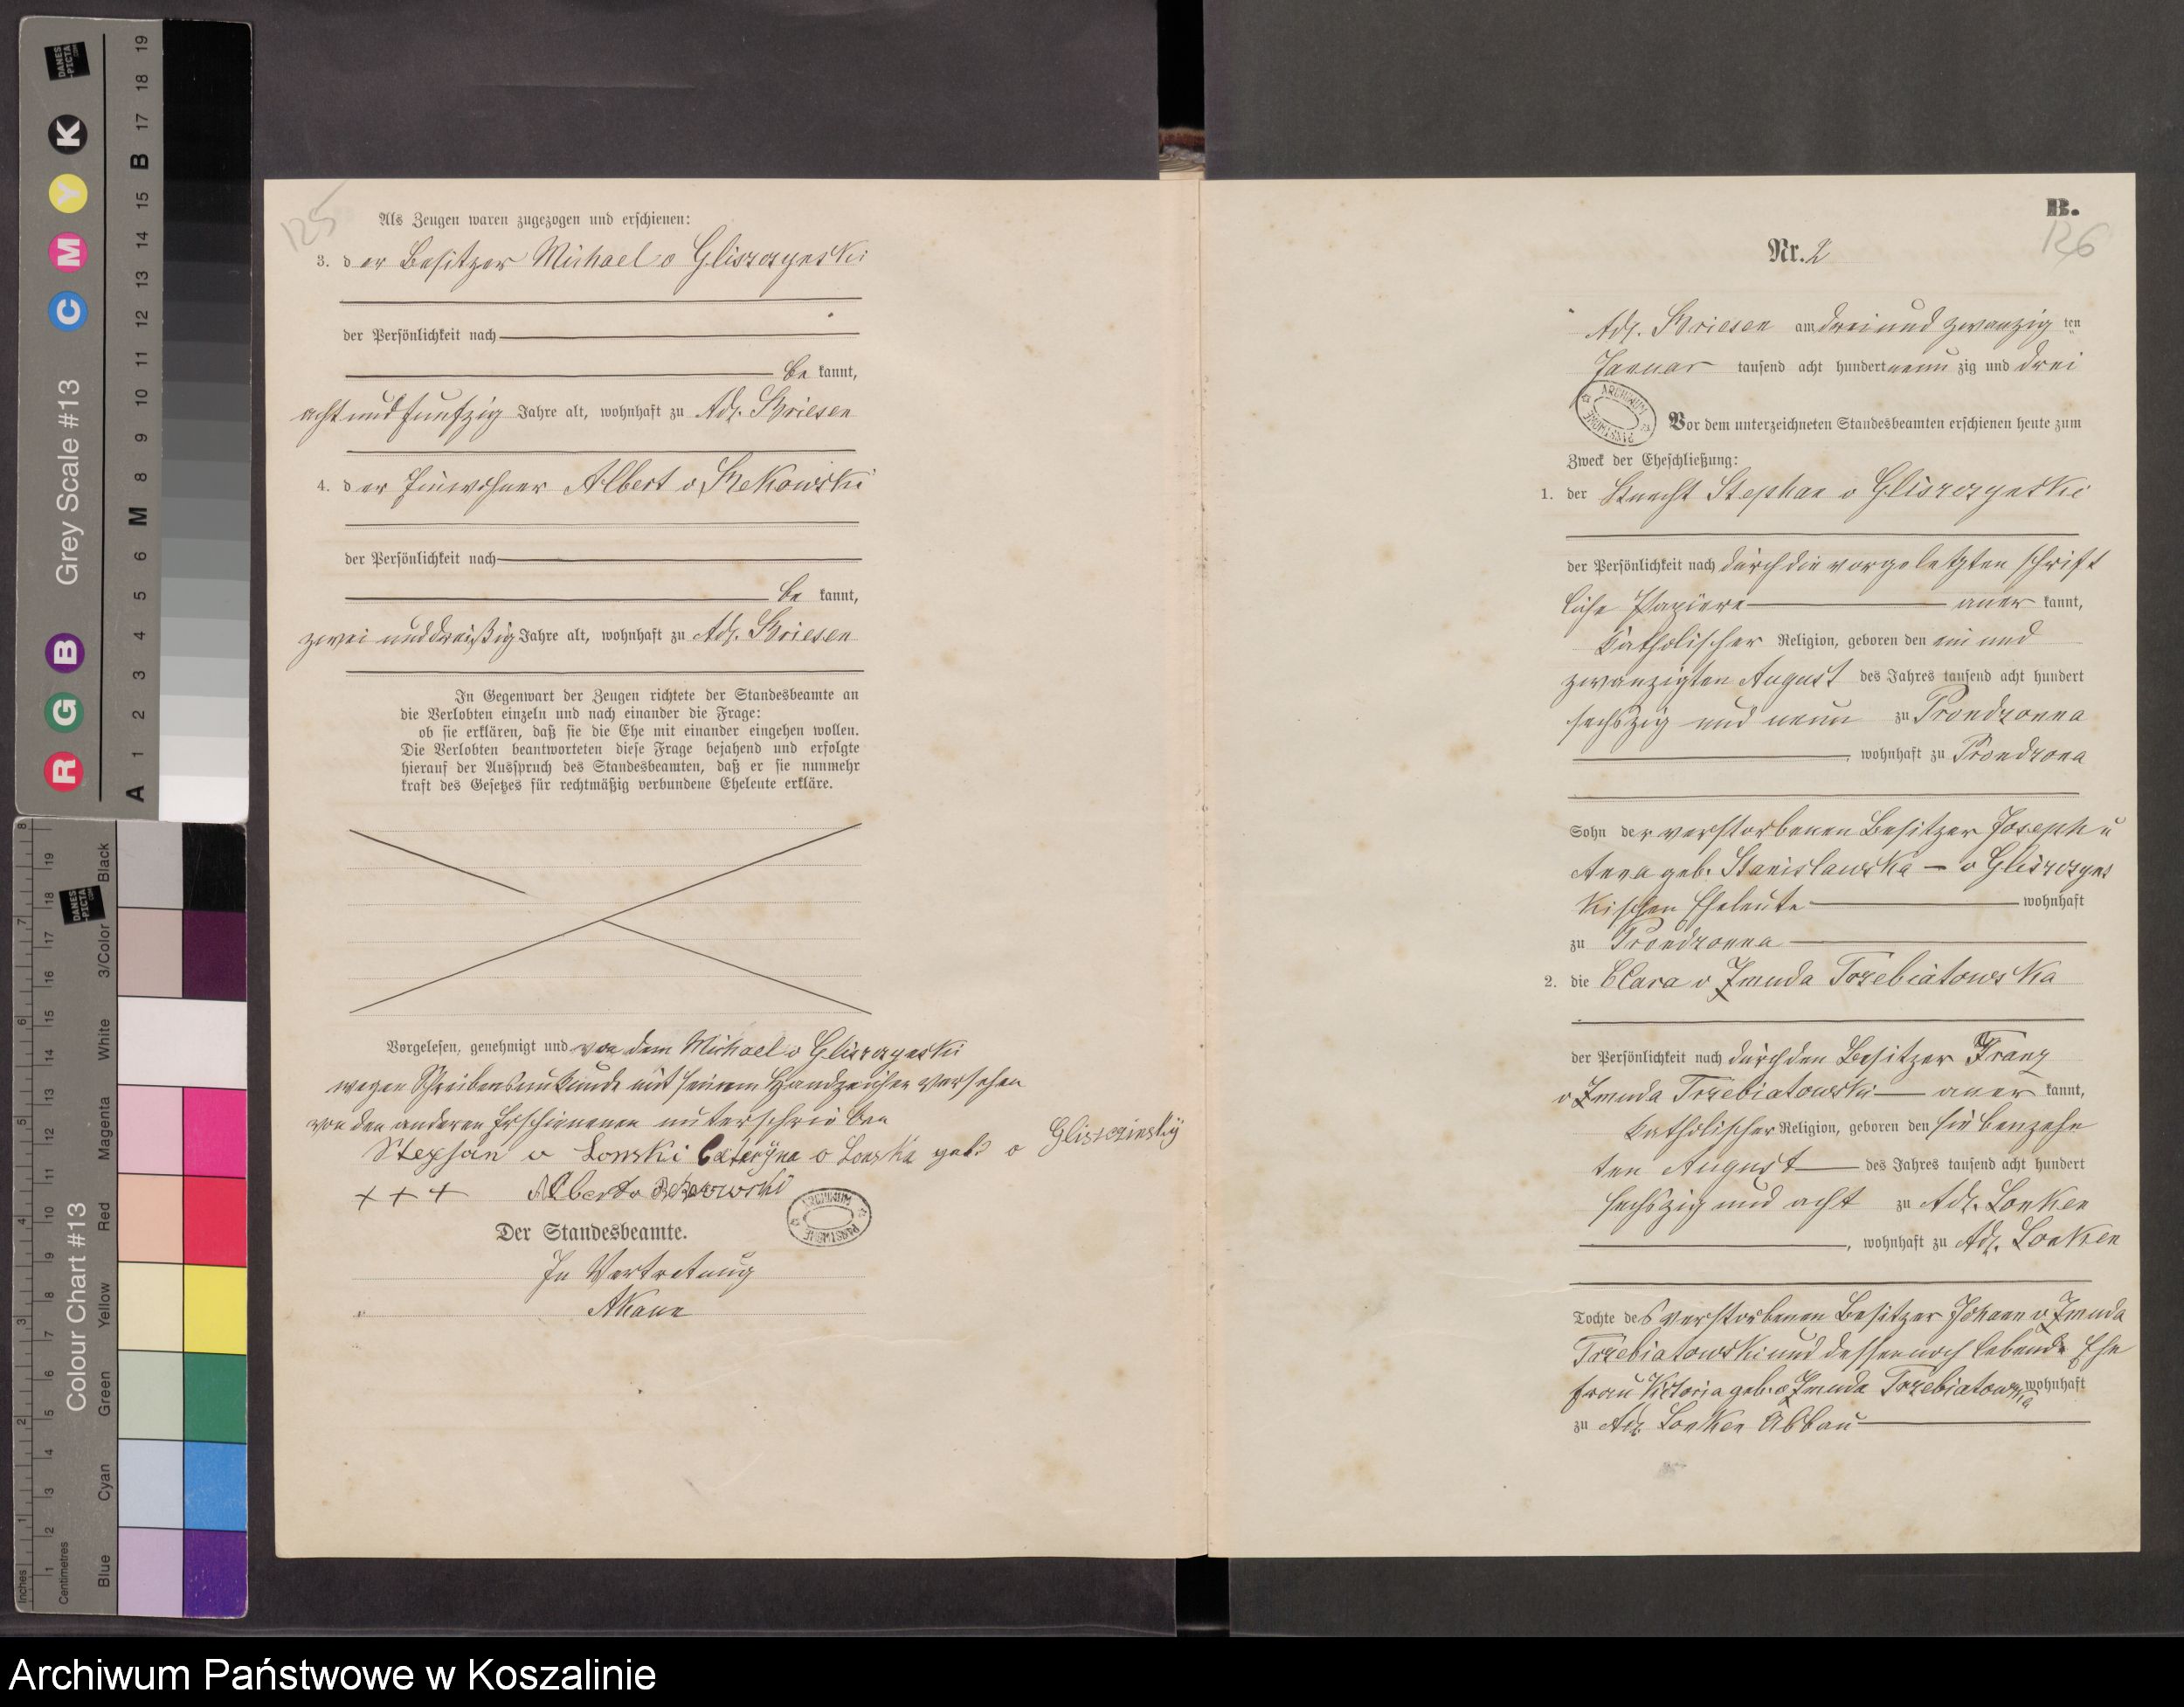 125
Als Zeugen waren zugezogen und erschienen:
3. der Besitzer Michael v Gliszczynski
der Persönlichkeit nach
be kannt,
acht und funfzig Jahre alt, wohnhaft zu Adl. Briesen
4. der Einwohner Albert v Rekowski
der Persönlichkeit nach
be kannt,
zwei und dreißig Jahre alt, wohnhaft zu Adl. Briesen
In Gegenwart der Zeugen richtete der Standesbeamte an
die Verlobten einzeln und nach einander die Frage:
ob sie erklären, daß sie die Ehe mit einander eingehen wollen.
Die Verlobten beantworteten diese Frage bejahend und erfolgte
hierauf der Ausspruch des Standesbeamten, daß er sie nunmehr
kraft des Gesetzes für rechtmäßig verbundene Eheleute erkläre.
Vorgelesen, genehmigt und von dem Michael v Gliszczynski
wegen Schreibensunkunde mit seinem Handzeichen versehen
von den anderen Erschienenen unterschrieben
Stephan v Lonski v Lonska geb v Gliszczinsky
+ + + Alberd v Rekowski
Der Standesbeamte.
In Vertretung
B.
126
Nr. 2
Adl. Briesen am drei und zwanzig ten
Januar tausend acht hundert neun zig und drei
Vor dem unterzeichneten Standesbeamten erschienen heute zum
Zweck der Eheschließung:
1. der Knecht Stephan v Gliszczynski
der Persönlichkeit nach durch die vorgelegten schrift
liche Papiere aner kannt,
katholischer Religion, geboren den ein und
zwanzigten August des Jahres tausend acht hundert
sechszig und neun zu Prondzonna
, wohnhaft zu Prondzona
Sohn der verstorbenen Besitzer Joseph u
Anna geb. Stanislawska - v Gliszczyns
kischen Eheleute wohnhaft
zu Prondzonna
2. die Clara v Zmuda Trzebiatowska
der Persönlichkeit nach durch den Besitzer Franz
v Zmuda Trzebiatowski aner kannt,
katholischer Religion, geboren den sieben zehn
ten August des Jahres tausend acht hundert
sechszig und acht zu Adl. Lonken
, wohnhaft zu Adl. Lonken
Tochte des verstorbenen Besitzer Johann v Zmuda
Trzebiatowski und dessen noch lebende Ehe
frau Victoria geb. v Zmuda Trzebiatowska wohnhaft
zu Adl. Lonken Abbau
ARCHIWUM PAŃSTWOWE
ARCHIWUM PAŃSTWOWE
Grey Scale #13
A 1 2 3 4 5 6 M 7 8 9 10 11 12 13 14 15 B 17 18 19
R G B C M Y K
DANES -PICTA .COM
Colour Chart #13
Blue Cyan Green Yellow Red Magenta White 3/Color Black
Inches
Centimetres
DANES -PICTA .COM
Archiwum Państwowe w Koszalinie